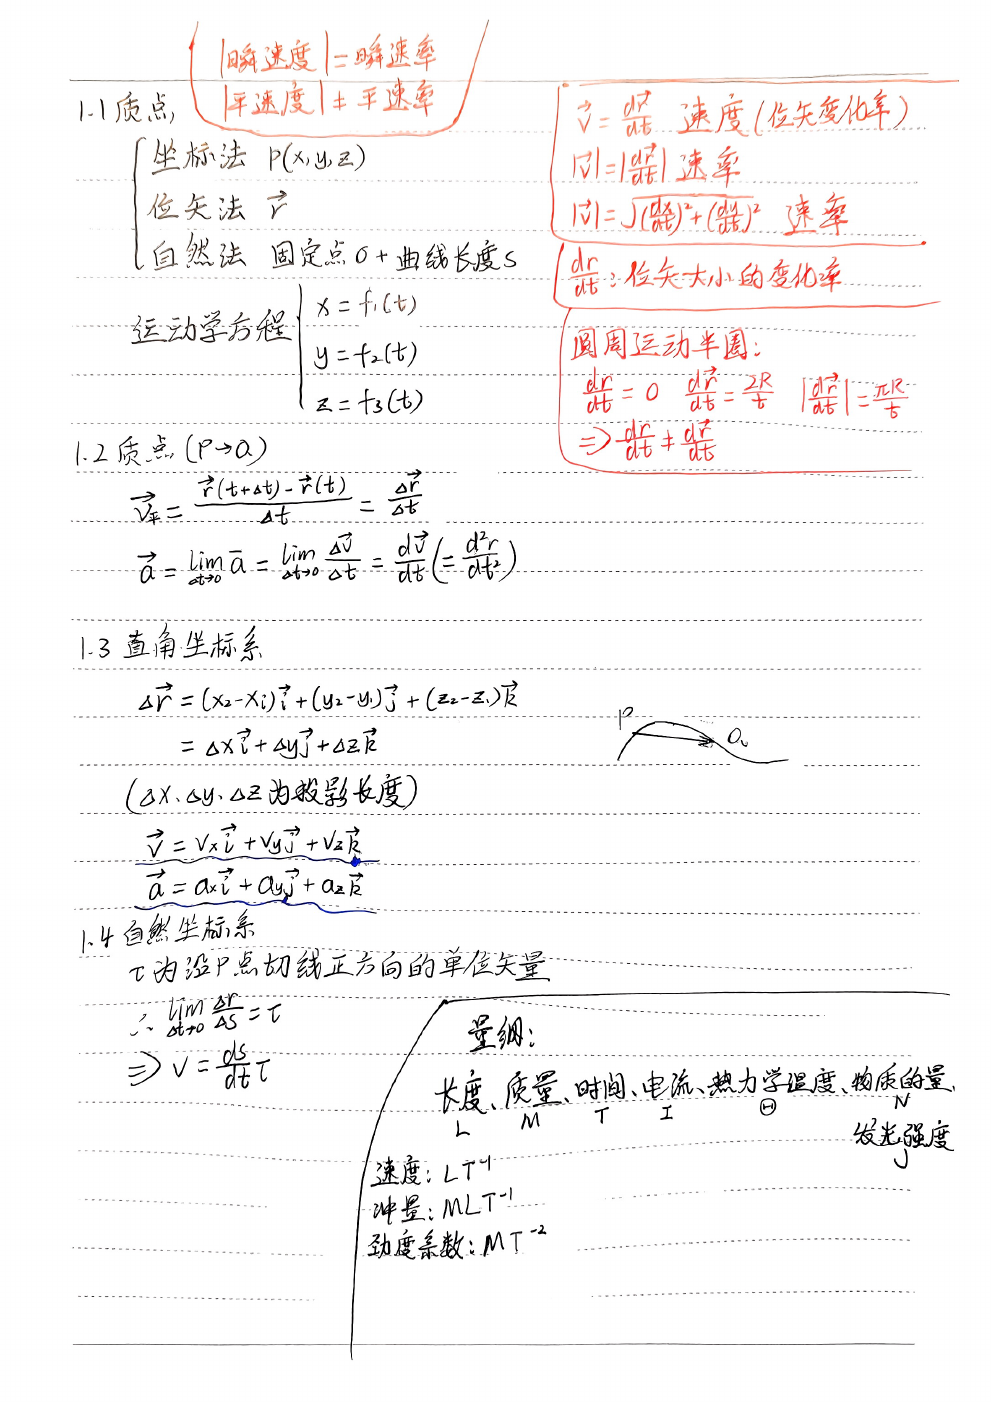 |瞬速度|=瞬速率
|平速度|≠平速率
1.1 质点,
坐标法 P(x,y,z)
位矢法 r⃗
自然法 固定点O+曲线长度S
运动学方程 { x=f₁(t)
y=f₂(t)
z=f₃(t)
v⃗ = dr⃗/dt 速度(位矢变化率)
|v⃗|=|dr⃗/dt| 速率
|v⃗|=√((dx/dt)²+(dy/dt)²) 速率
dr/dt:位矢大小的变化率
圆周运动半圈:
dr/dt = 0 dr⃗/dt = 2R/t |dr⃗/dt| = πR/t
⇒ dr/dt ≠ dr⃗/dt
1.2 质点(P→Q)
v⃗平 = (r⃗(t+Δt)-r⃗(t))/Δt = Δr⃗/Δt
a⃗ = lim Δt→0 ā = lim Δt→0 Δv⃗/Δt = dv⃗/dt (= d²r/dt²)
1.3 直角坐标系
Δr⃗ = (x₂-x₁)i⃗+(y₂-y₁)j⃗+(z₂-z₁)k⃗
= Δxi⃗+Δyj⃗+Δzk⃗
(Δx、Δy、Δz为投影长度)
P Q
v⃗ = Vxi⃗+Vyj⃗+Vzk⃗
a⃗ = axi⃗+ayj⃗+azk⃗
1.4 自然坐标系
τ为沿P点切线正方向的单位矢量
∴ lim Δt→0 Δr/ΔS = τ
⇒ V = ds/dt τ
量纲:
长度、质量、时间、电流、热力学温度、物质的量、
L M T I Θ N
发光强度
J
速度:LT⁻¹
冲量:MLT⁻¹
劲度系数:MT⁻²